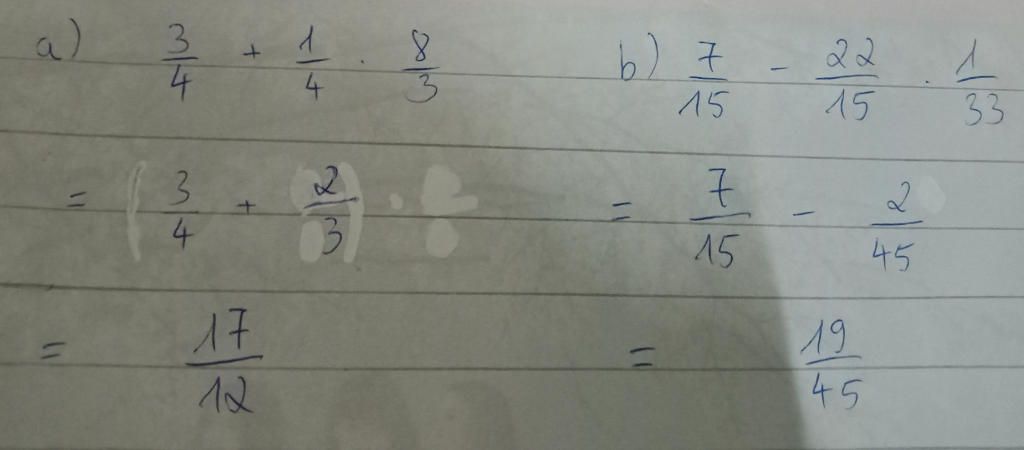 a) 3/4 + 1/4 · 8/3
= 3/4 + 2/3
= 17/12
b) 7/15 - 22/15 · 1/33
= 7/15 - 2/45
= 19/45